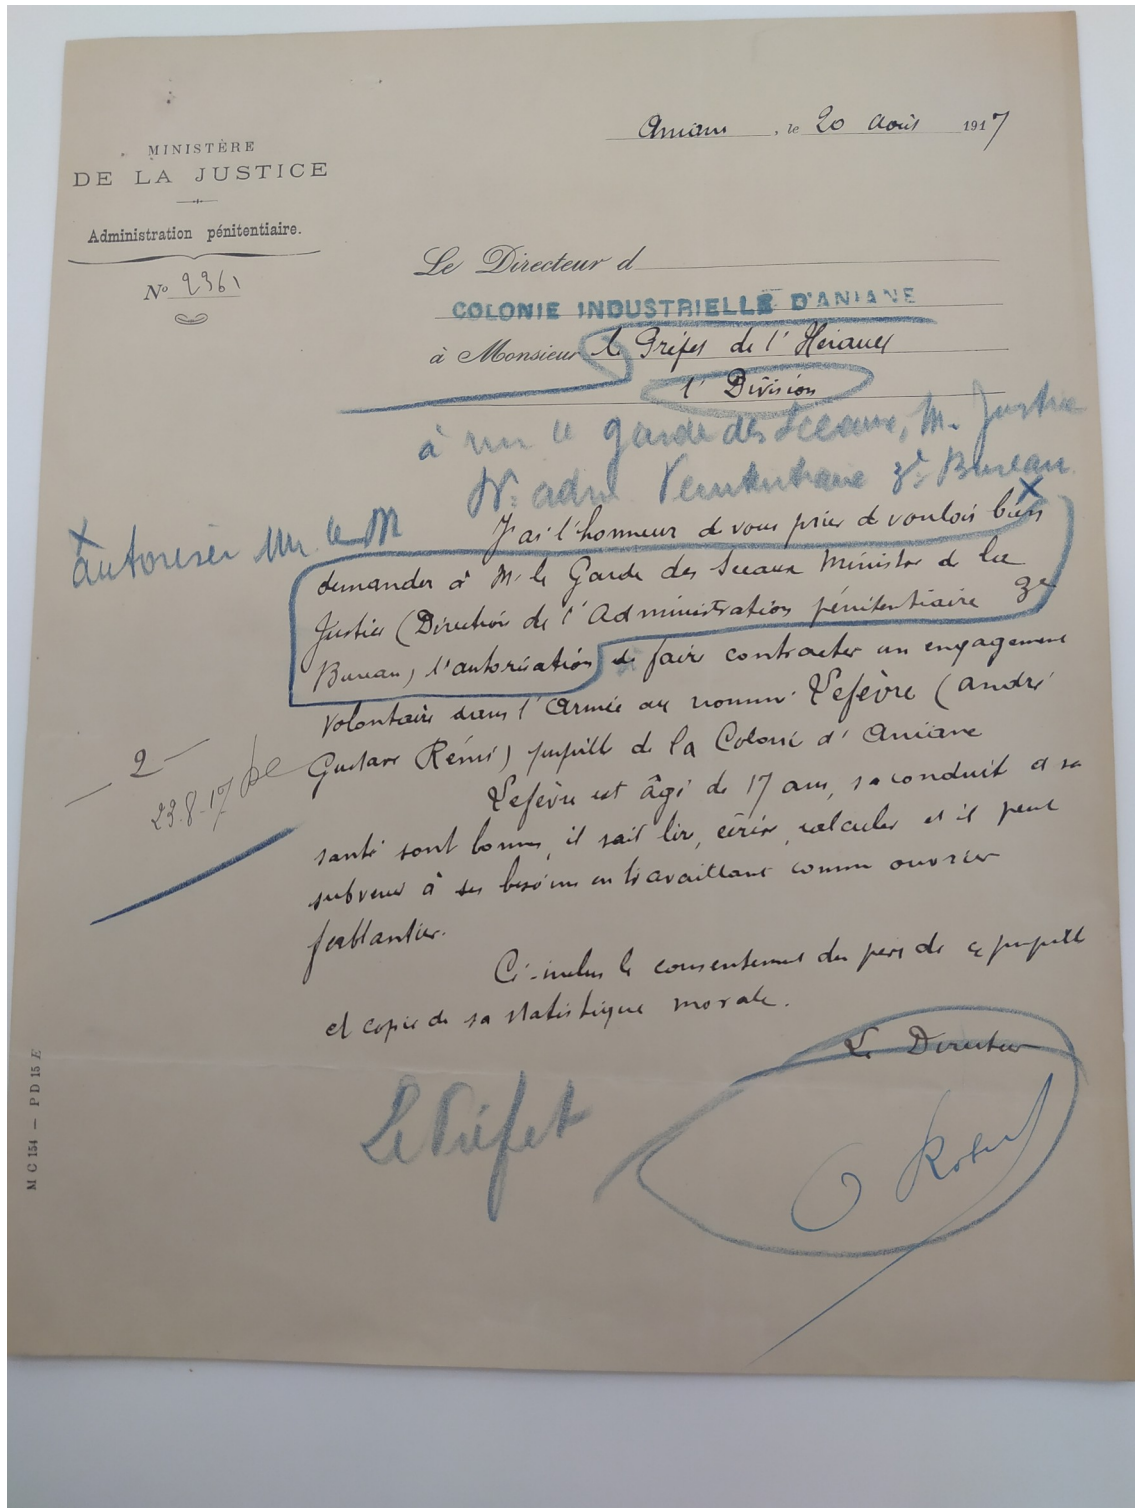 Aniane, le 20 Août 1917
MINISTÈRE
DE LA JUSTICE
Administration pénitentiaire.
No 2361
Le Directeur d
COLONIE INDUSTRIELLE D'ANIANE
à Monsieur le Préfet de l'Hérault
1e Division
à Mr le garde des Sceaux, M. Justice
Dn. adm. Penitentiaire 3e Bureau
x
J'ai l'honneur de vous prier de vouloir bien
x
autoriser Mr le M
demander à M. le Garde des Sceaux Ministre de la
Justice (Direction de l'Administration pénitentiaire 3e
Bureau) l'autorisation de faire contracter un engagement
volontaire dans l'Armée au nommé Lefèvre (André
Gustave Rémi) pupille de la Colonie d'Aniane
- 2 -
23.8.17
Lefèvre est âgé de 17 ans, sa conduite et sa
santé sont bonnes, il sait lire, écrire, calculer et il peut
subvenir à ses besoins en travaillant comme ouvrier
ferblantier.
Ci-inclus le consentement du père de ce pupille
et copie de sa statistique morale.
Le Directeur
Le Préfet
M C 154 — P D 15 E